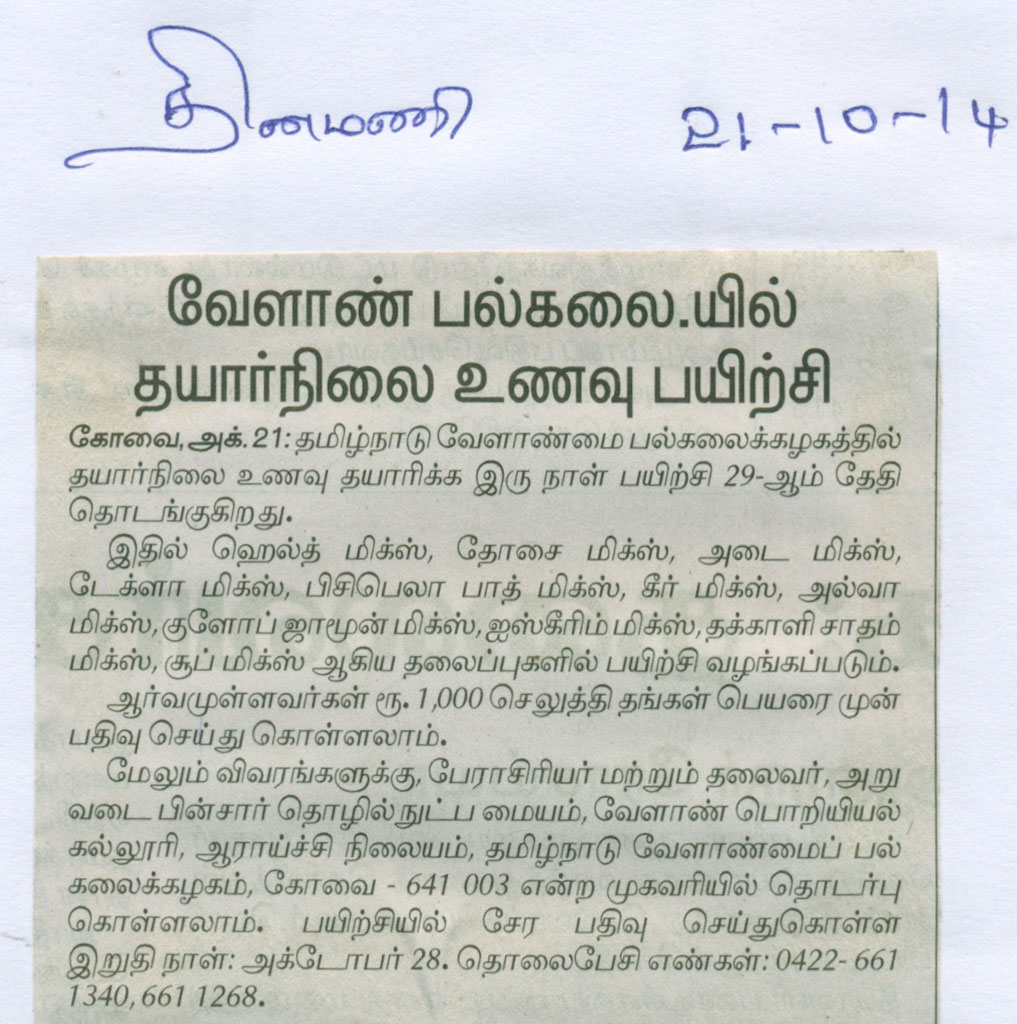 தினமணி 21-10-14
வேளாண் பல்கலை.யில்
தயார்நிலை உணவு பயிற்சி
கோவை, அக். 21: தமிழ்நாடு வேளாண்மை பல்கலைக்கழகத்தில்
தயார்நிலை உணவு தயாரிக்க இரு நாள் பயிற்சி 29-ஆம் தேதி
தொடங்குகிறது.
இதில் ஹெல்த் மிக்ஸ், தோசை மிக்ஸ், அடை மிக்ஸ்,
டேக்ளா மிக்ஸ், பிசிபெலா பாத் மிக்ஸ், கீர் மிக்ஸ், அல்வா
மிக்ஸ், குளோப் ஜாமூன் மிக்ஸ், ஐஸ்கீரிம் மிக்ஸ், தக்காளி சாதம்
மிக்ஸ், சூப் மிக்ஸ் ஆகிய தலைப்புகளில் பயிற்சி வழங்கப்படும்.
ஆர்வமுள்ளவர்கள் ரூ. 1,000 செலுத்தி தங்கள் பெயரை முன்
பதிவு செய்து கொள்ளலாம்.
மேலும் விவரங்களுக்கு, பேராசிரியர் மற்றும் தலைவர், அறு
வடை பின்சார் தொழில் நுட்ப மையம், வேளாண் பொறியியல்
கல்லூரி, ஆராய்ச்சி நிலையம், தமிழ்நாடு வேளாண்மைப் பல்
கலைக்கழகம், கோவை - 641 003 என்ற முகவரியில் தொடர்பு
கொள்ளலாம். பயிற்சியில் சேர பதிவு செய்துகொள்ள
இறுதி நாள்: அக்டோபர் 28. தொலைபேசி எண்கள்: 0422- 661
1340, 661 1268.